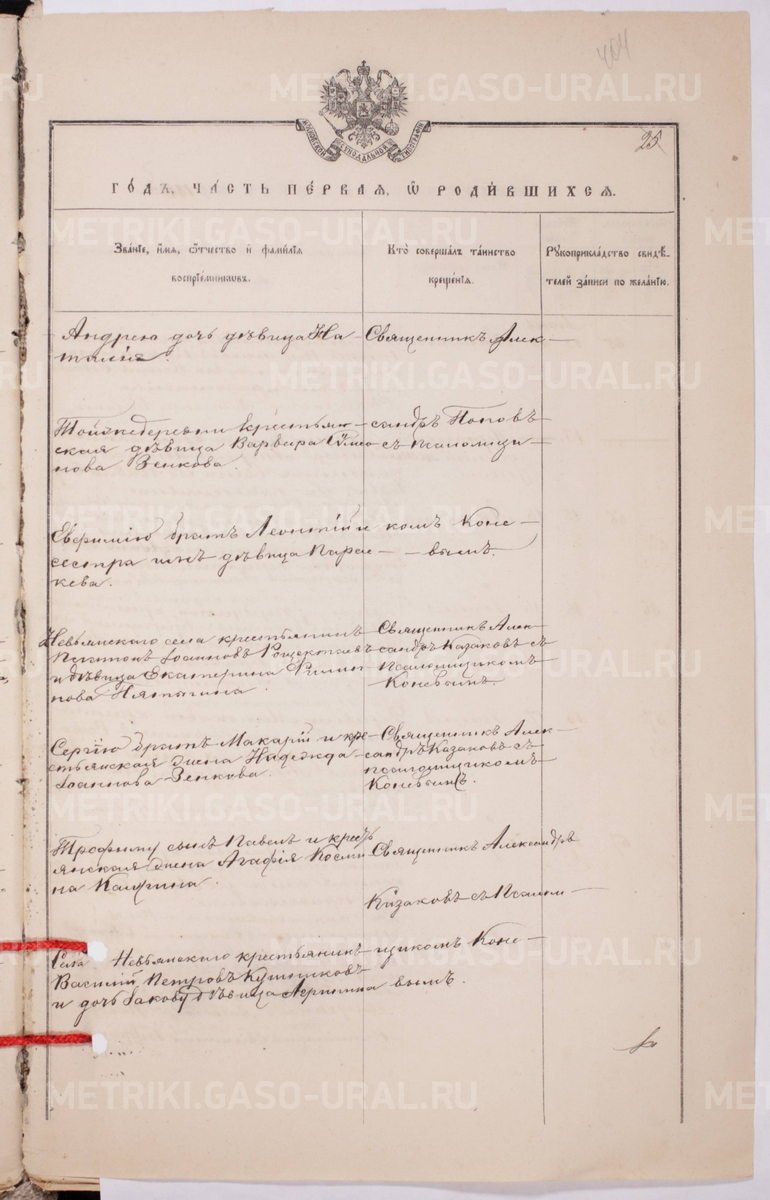 404
25
МОСКОВСКОЙ СѴНОДАЛЬНОЙ ТИПОГРАФІИ
ГО́ДЪ, ЧА́СТЬ ПЕ́РВАЯ, Ѡ҆ РОДИ́ВШИХСЯ.
Зва́нїе, и҆́мя, ѻ҆́тчество и҆ фами́лїя
воспрїе́мникѡвъ.
Кто̀ соверша́лъ та́инство
креще́нїя.
Рꙋкоприкла́дство свидѣ́-
телей за́писи по жела́нїю.
Андрею дочь дѣвица На-
талія.
Священникъ Алек-
Тойже деревни крестьян-
ская дѣвица Варвара
нова Зенкова.
сандръ Поповъ
съ псаломщи-
Евфимію братъ Леонтій и
сестра ихъ дѣвица Парас-
кева.
комъ Коне-
вымъ.
Невьянскаго села крестьянинъ
Іоанновъ
и дѣвица Екатерина Филип
пова
Священникъ Алек-
сандръ Казаковъ съ
псаломщикомъ
Коневымъ.
Сергію братъ Макарій и кре-
стьянская жена Надежда
Іоаннова Зенкова.
Священникъ Алек-
сандръ Казаковъ съ
псаломщикомъ
Коневымъ.
Трофиму сынъ Павелъ и кресть
янская жена Агафія Косми
на Калугина.
Священникъ Александръ
Казаковъ съ Псалом-
Села Невьянскаго крестьянинъ
Василій Петровъ
и дочь Іакову дѣвица
щикомъ Коне-
вымъ.
METRIKI.GASO-URAL.RU